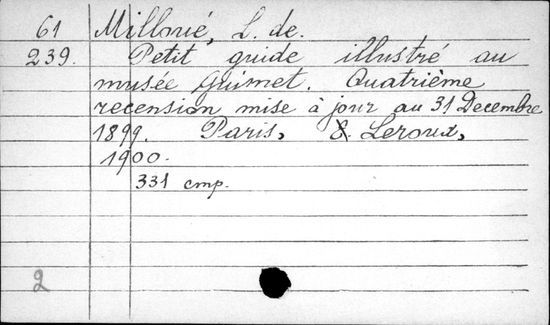 61 Milloué, L. de.
239. Petit guide illustré au
musée Guimet. Quatrième
recension mise à jour au 31 Decembre
1899. Paris, E. Leroux,
1900.
331 cmp.
2